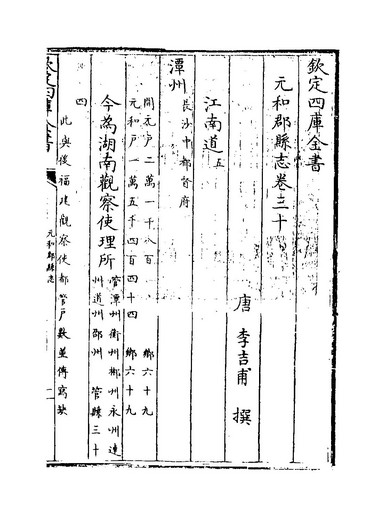 欽定四庫全書
元和郡縣志卷三十
唐 李吉甫 撰
江南道五
潭州
長沙中都督府
開元户二萬一千八百 鄉六十九
元和户一萬五千四百四十四 鄉六十九
今為湖南觀察使理所
管潭州衡州郴州永州連
州道州邵州 管縣三十
四
此與後福建觀察使都管户數並傳寫缺
欽定四庫全書
元和郡縣志
一